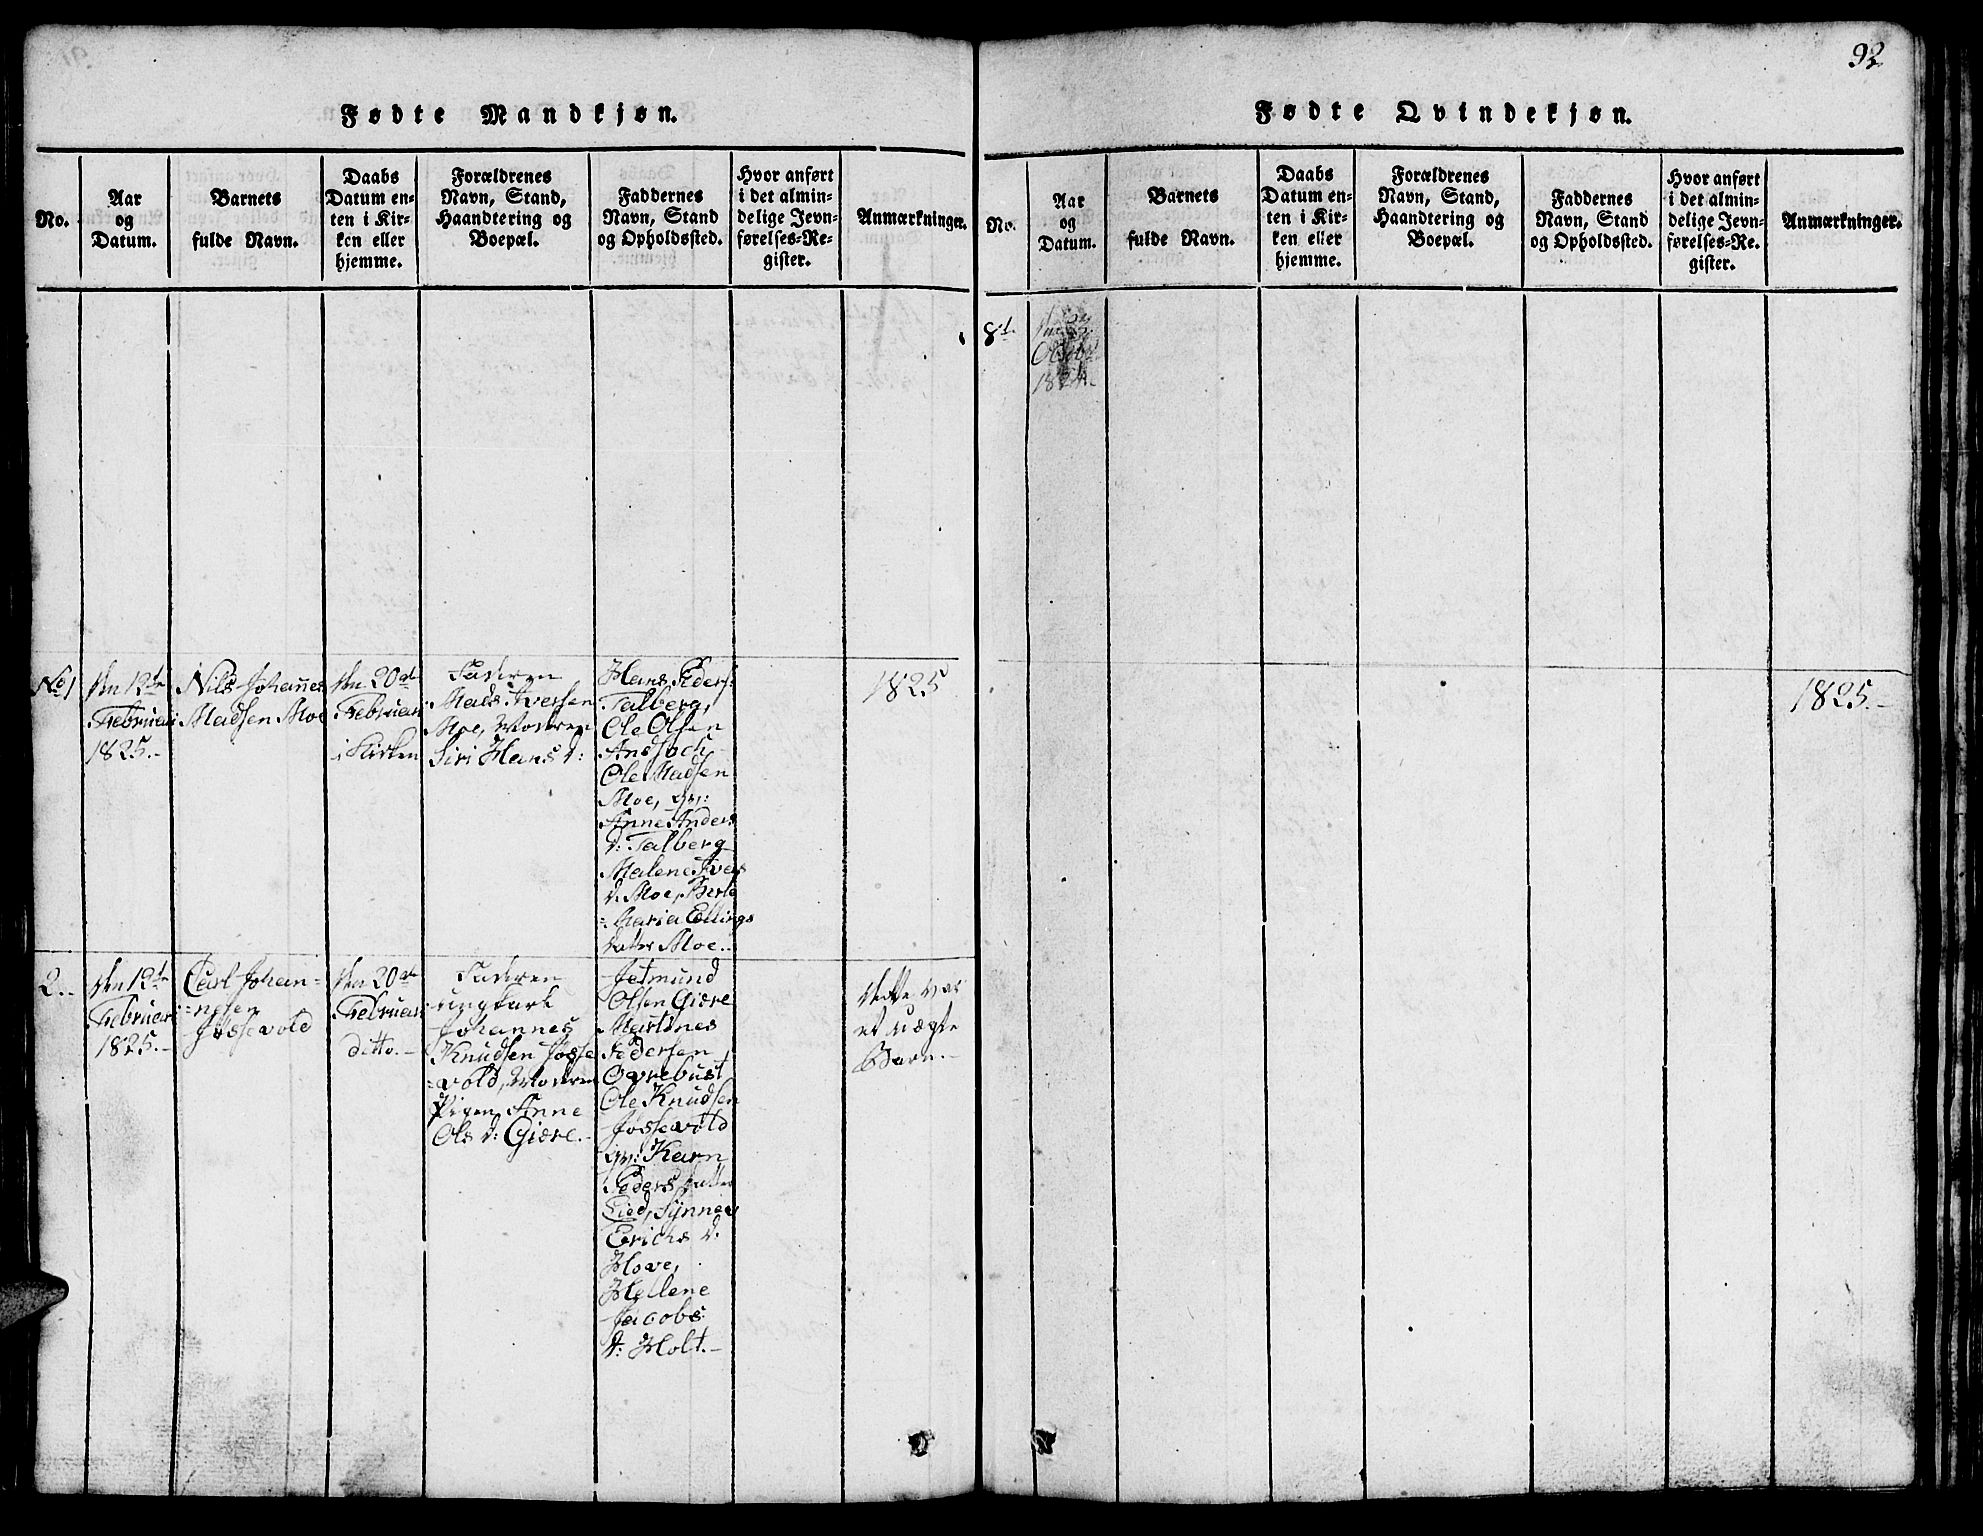 92
Fødte Mandkjøn.
No.
Aar
og
Datum.
Barnets
fulde Navn.
Daabs
Datum en-
ten i Kir-
ken eller
hjemme.
Forældrenes
Navn, Stand,
Haandtering og
Boepæl.
Faddernes
Navn, Stand
og Opholdssted.
Hvor anført
i det almin-
delige Jevn-
førelses-Re-
gister.
Anmærkninger.
No 1
den 12te
Februari
1825.-
Nils Johannes
Madsen Moe
den 20de
Februari
i Kirken
Faderen
Mads Iversen
Moe, Moderen
Siri Hans d:
Hans Peders:
Talberg,
Ole Olsen
Ole Madsen
Moe, qv:
Anne Anders
d: Talberg
Malene Ivers
d: Moe, Berte
=Maria Ellings
datter Moe..
1825
2..
den 12te
Februari
1825.-
Carl Johan=
=nesen
Jossevold
den 20de
Februari
ditto.-
Faderen
ungkarl
Johannes
Knudsen Josse
=vold, Moderen
Pigen Anne
Ols d: Giære.-
Jetmund
Olsen Giære
Martines
Pedersen
Ovrebust
Ole Knudsen
Jossevold
qv: Karn
Peders datter
Lied, Synnev
Erichs d:
Hove,
Hellene
Jacobs
d: Holt.-
dette var
et uægte
Barn.-
Fødte Qvindekjøn.
No.
Aar
og
Datum.
Barnets
fulde Navn.
Daabs
Datum en-
ten i Kir-
ken eller
hjemme.
Forældrenes
Navn, Stand,
Haandtering og
Boepæl.
Faddernes
Navn, Stand
og Opholdssted.
Hvor anført
i det almin-
delige Jevn-
førelses-Re-
gister.
Anmærkninger.
8d.
1824.-
1825.-